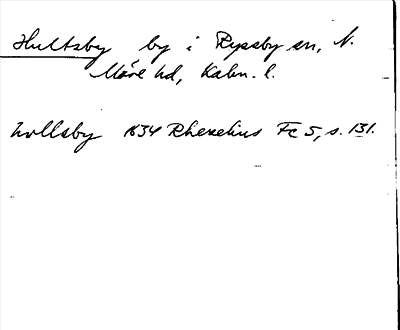 Hultsby by i Ryssby sn, N.
Möre hd, Kalm. l.
hollsby 1634 Rhezelius Fc 5, s. 131.